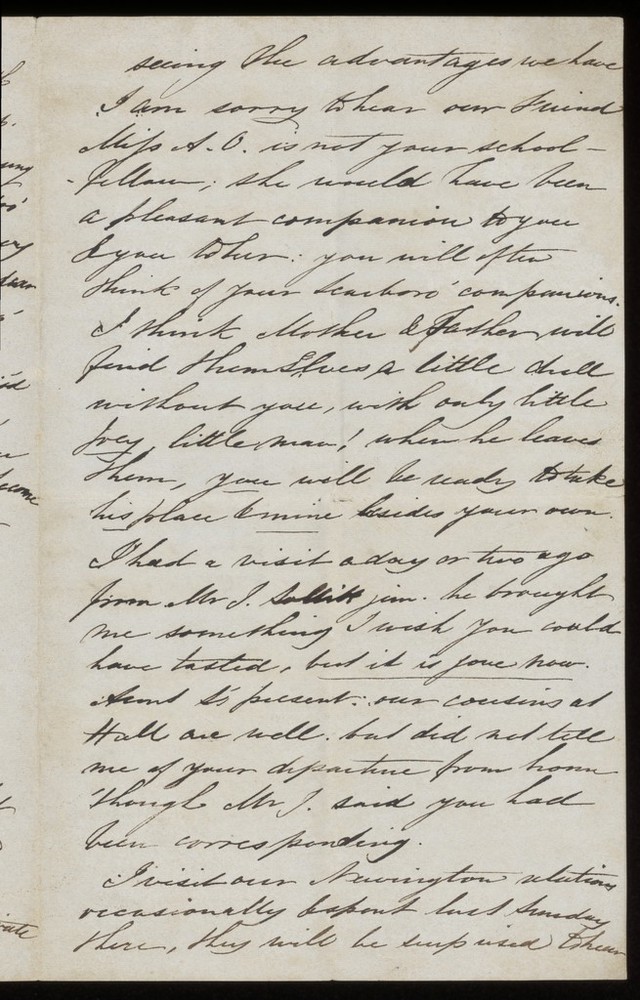 seeing the advantages we have
I am sorry to hear our Friend
Miss A. O. is not your school-
fellow; she would have been
a pleasant companion to you
& you to her: you will often
think of your Scarboro' companions.
I think Mother & Father will
find themselves a little dull
without you, with only little
Joey, little man! when he leaves
them, you will be ready to take
his place & mine besides your own.
I had a visit a day or two ago
from Mr J. jun. he brought
me something I wish you could
have tasted, but it is gone now.
Aunt S's present: our cousins at
Hull are well. but did not tell
me of your departure from home
'though Mr J. said you had
been corresponding.
I visit our Newington relations
occasionally & spent last Sunday
there, they will be surprised to hear